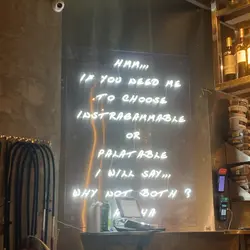 HMM,,,
IF YOU NEED ME
TO CHOOSE
INSTRAGAMMABLE
OR
PALATABLE
I WILL SAY...
WHY NOT BOTH ?